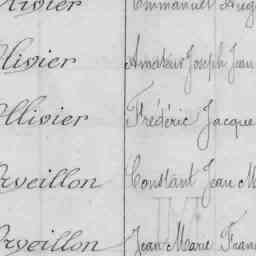 Ollivier Emmanuel Aug
Ollivier Amateur Joseph Jean
Ollivier Frédéric Jacque
Orveillon Constant Jean M
Orveillon Jean Marie Fran